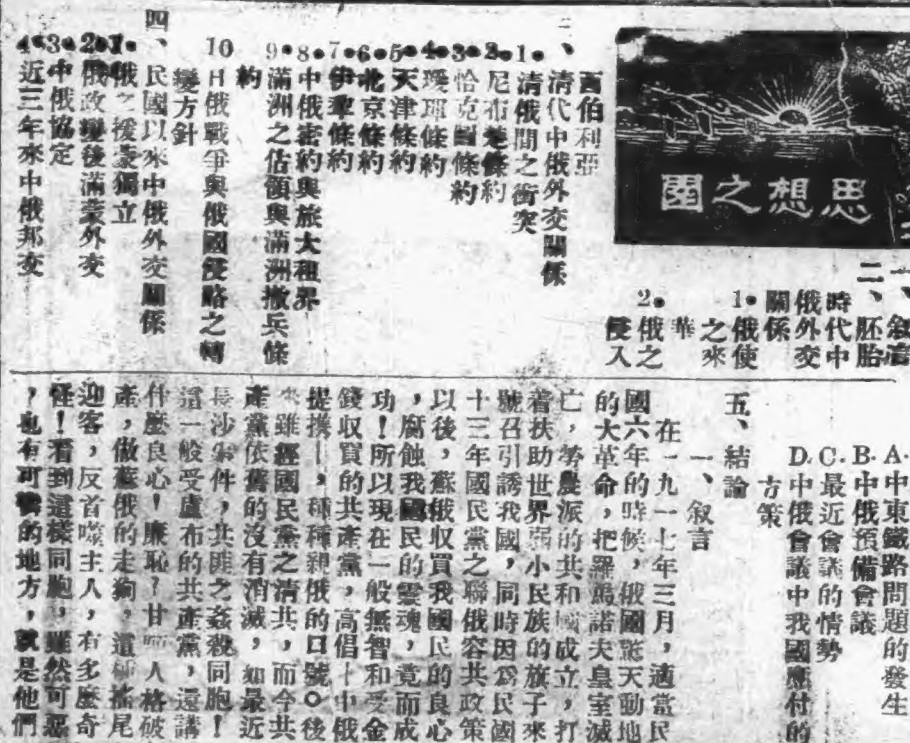 思想之園
一、叙言
二、胚胎
時代中
俄外交
關係
1.俄使
之來
華
2.俄之
侵入
西伯利亞
三、清代中俄外交關係
1.清俄間之衝突
2.尼布楚條約
3.恰克圖條約
4.璦琿條約
5.天津條約
6.北京條約
7.伊犂條約
8.中俄密約與旅大租界
9.滿洲之佔領與滿洲撤兵條
約
10日俄戰爭與俄國侵略之轉
變方針
四、民國以來中俄外交關係
1.俄之援蒙獨立
2.俄政變後滿蒙外交
3.中俄協定
4.近三年來中俄邦交
A.中東鐵路問題的發生
B.中俄預備會議
C.最近會議的情勢
D.中俄會議中我國應付的
方策
五、結論
一、叙言
在一九一七年三月，適當民
國六年的時候，俄國驚天動地
的大革命，把羅馬諾夫皇室滅
亡，勞農派的共和國成立，打
着扶助世界弱小民族的旗子來
號召引誘我國，同時因爲民國
十三年國民黨之聯俄容共政策
以後，蘇俄收買我國民的良心
，腐蝕我國民的靈魂，竟而成
功！所以現在一般無智和受金
錢收買的共產黨，高倡「中俄
提携」種種親俄的口號。後
來雖經國民黨之清共，而今共
產黨依舊的沒有消滅，如最近
長沙事件，共匪之姦殺同胞！
這一般受盧布的共產黨，還講
什麼良心！廉恥？甘 人格破
產，做蘇俄的走狗，還 搖尾
迎客，反首噬主人，有多麼奇
怪！看到這樣同胞，雖然可惡
，也有可憐的地方，就是他們